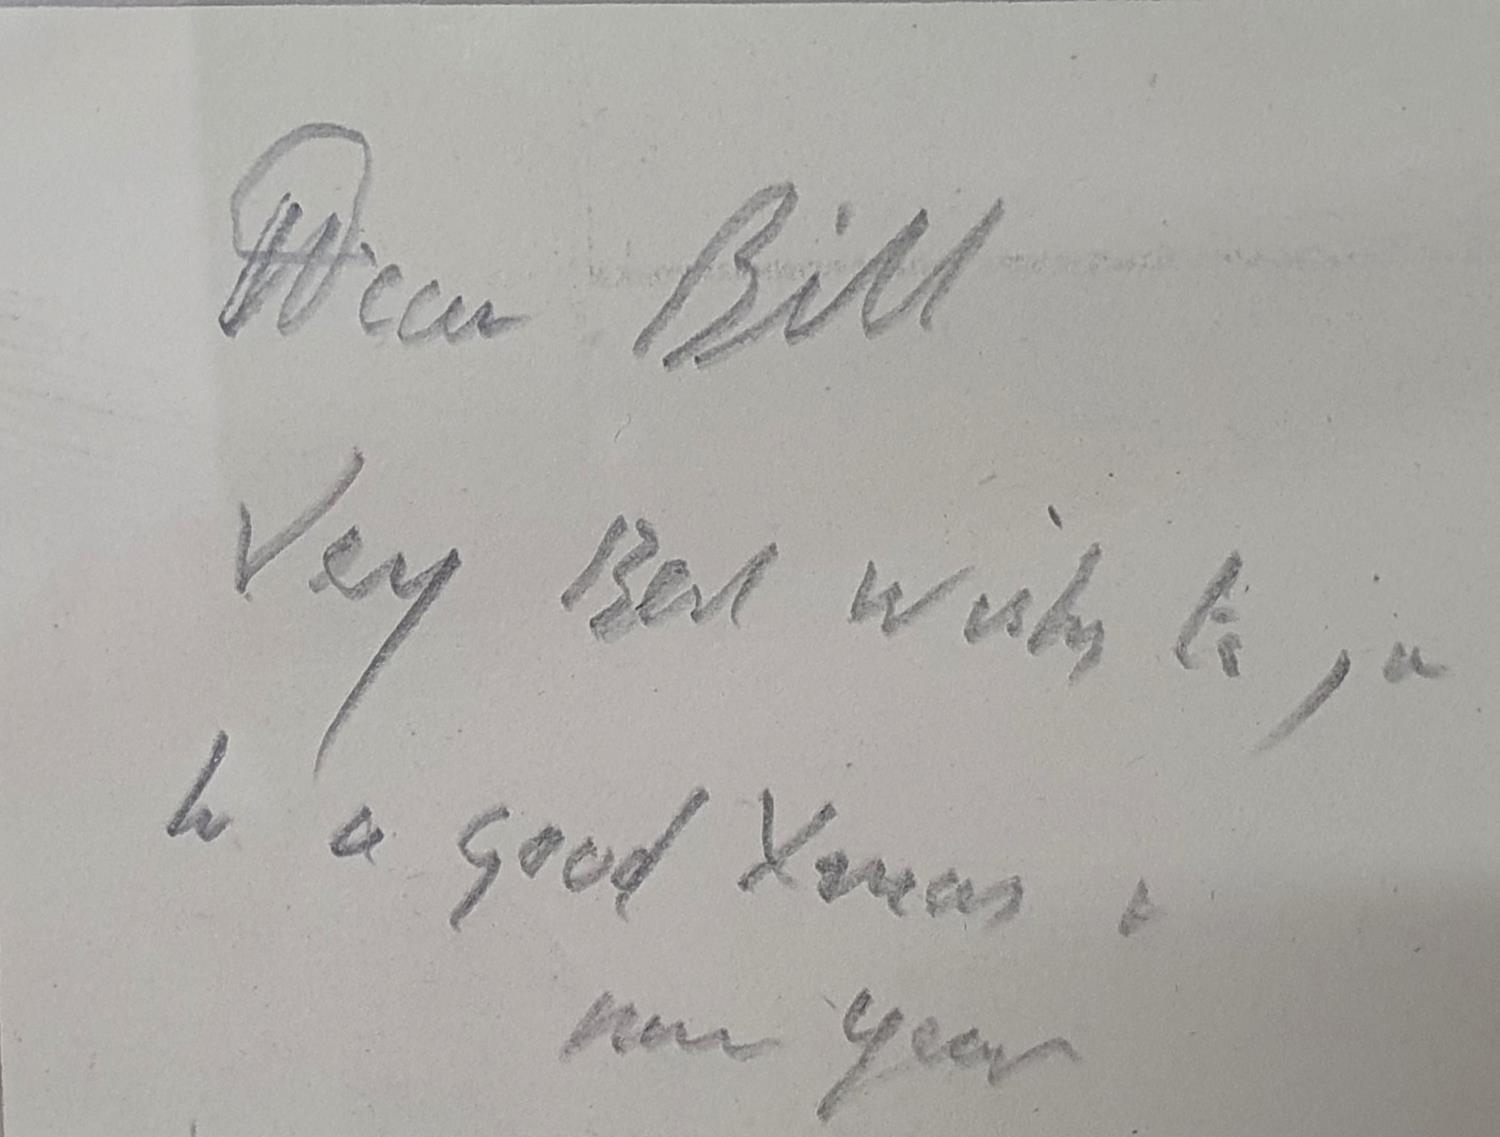 Dear Bill
Very Best wishes to you
for a good Xmas &
new year